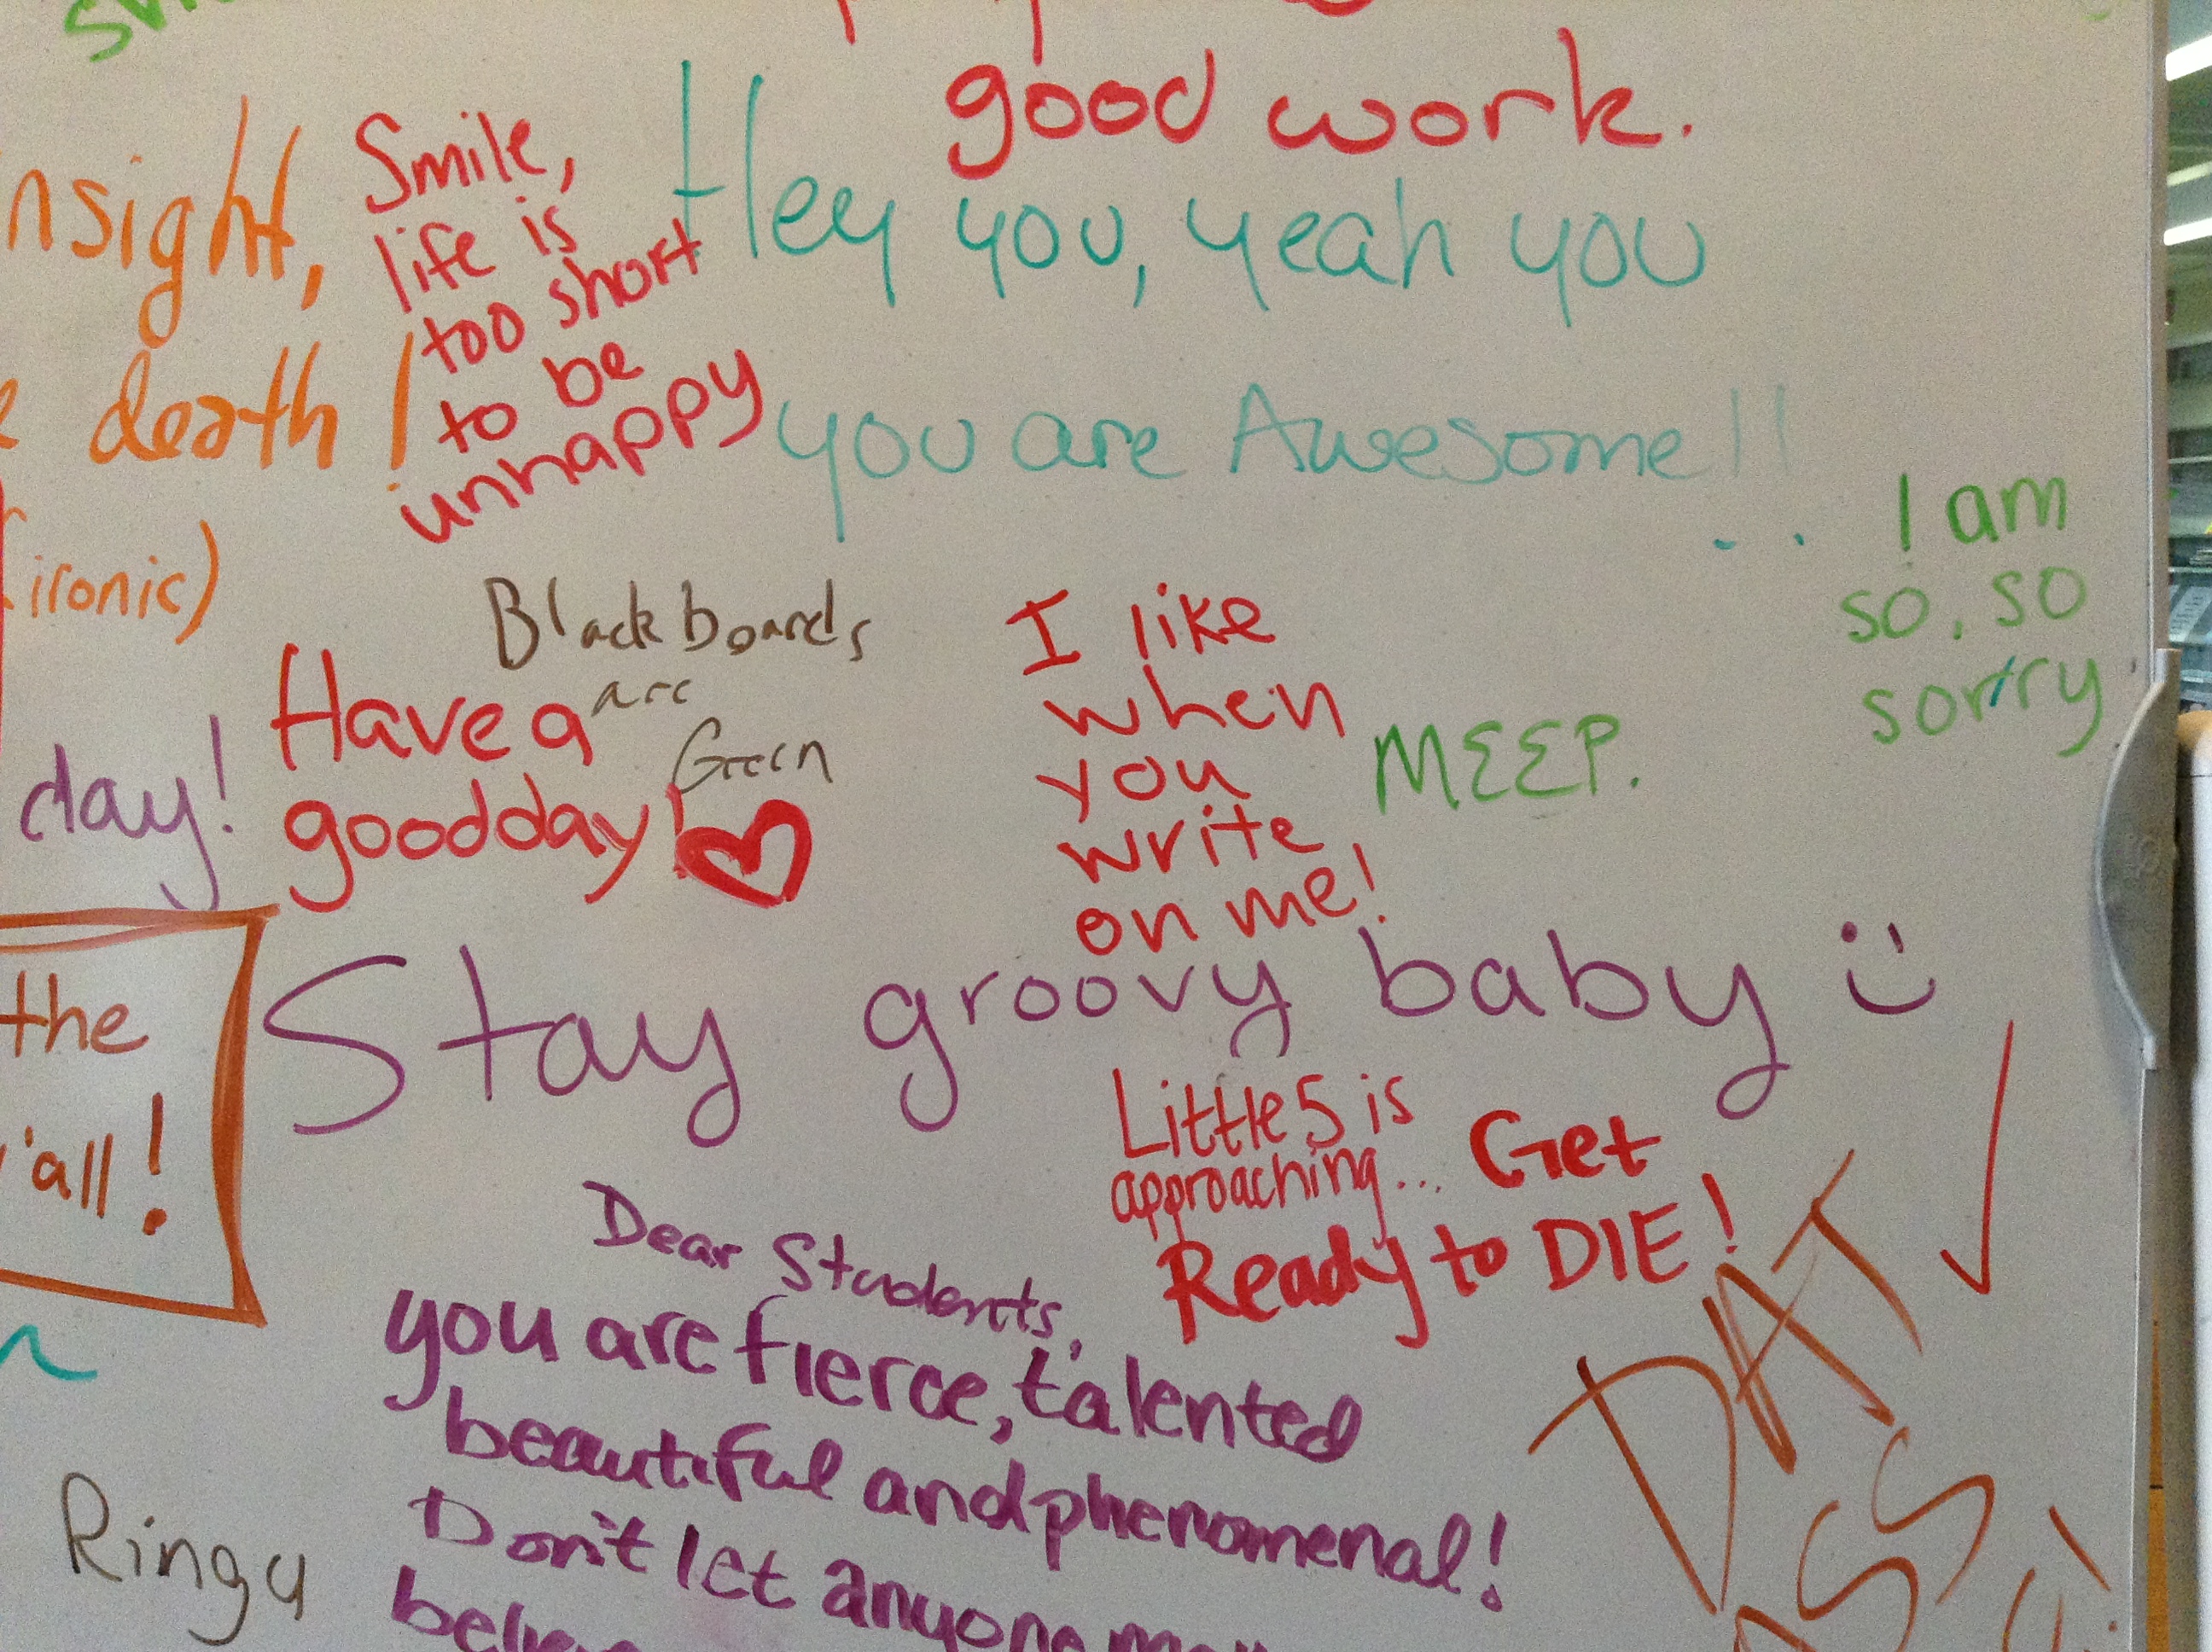 good work.
nsight,
death!
ironic)
Smile,
life is
too short
to be
unhappy
Hey you, yeah you
you are Awesome!!
I am
so, so
sorry
Blackboards
are
Green
day!
Have a
good day!
I like
when
you
write
on me!
MEEP.
the
'all!
Stay groovy baby
Little 5 is
approaching... Get
Ready to DIE!
Dear Students,
you are fierce, talented
beautiful and phenomenal!
Don't let anyone
DAT
Ringu